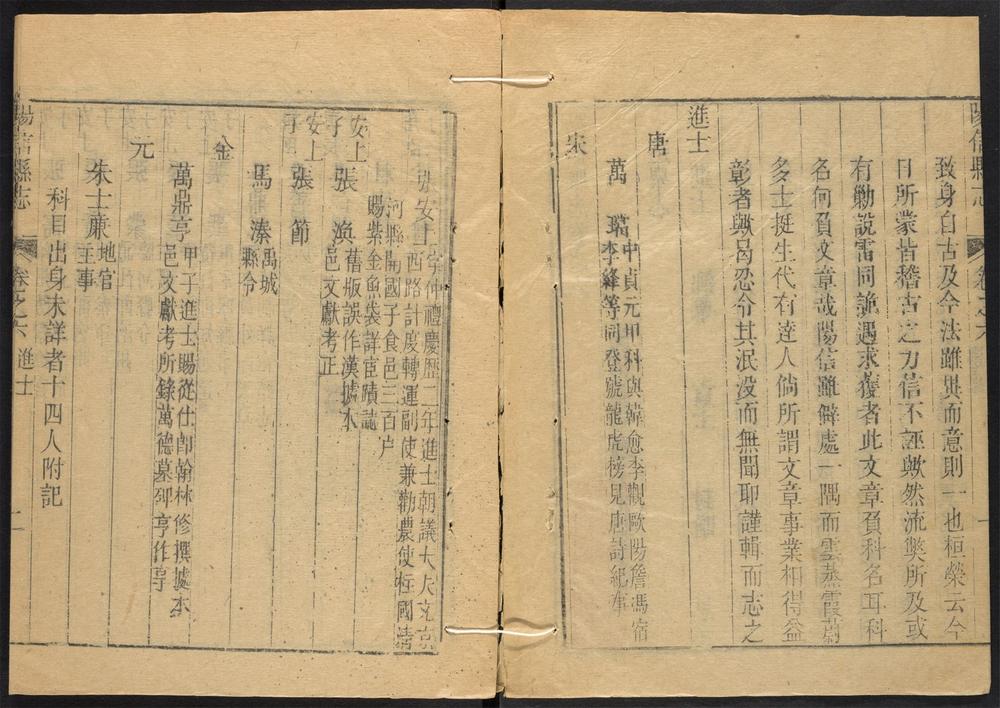 陽信縣志
卷之六
一
致身自古及今法雖異而意則一也桓榮云今
日所蒙皆稽古之力信不誣歟然流獘所及或
有勦說雷同詭遇求獲者此文章負科名耳科
名何負文章哉陽信雖僻處一隅而雲蒸霞蔚
多士挺生代有達人倘所謂文章事業相得益
彰者歟曷忍令其泯没而無聞耶謹輯而志之
進士
唐
萬 璫
中貞元甲科與韓愈李觀歐陽詹馮宿
李絳等同登號龍虎榜見唐詩紀事
宋
張安上
字仲禮慶歷二年進士朝議大夫充京
西路計度轉運副使兼勸農使柱國清
河縣開國子食邑三百户
賜紫金魚袋詳宦蹟誌
張 渙
安上子
舊版誤作漢據本
邑文獻考正
張 節
安上子
馬 溱
禹城
縣令
金
萬鼎亨
甲子進士賜從仕郎翰林修撰據本
邑文獻考所錄萬德墓 亨作亨
元
朱士廉
地官
主事
科目出身未詳者十四人附記
陽信縣志
卷之六 進士
二